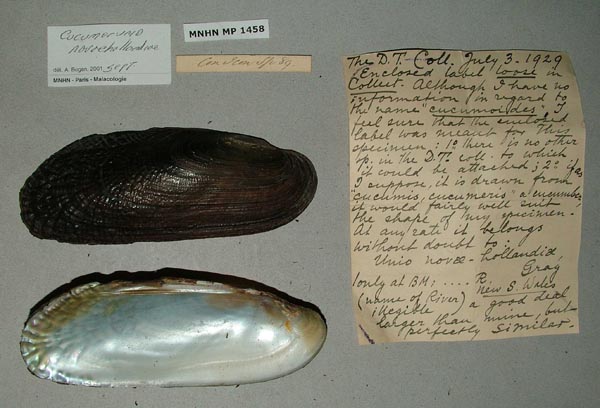 Cucumerunio
novaehollandiae
dét. A. Bogan, 2001 sept.
MNHN - Paris - Malacologie
MNHN MP 1458
The D.T. Coll. July 3. 1929
Enclosed label loose in
Collect. Although I have no
information in regard to
the name "cucumoides", I
feel sure that the enclosed
label was meant for this
specimen: 1º there is no other
sp. in the D.T. coll. to which
it could be attached; 2º if, as
I suppose, it is drawn from
"cucumis, cucumeris" a cucumber,
it would fairly well suit
the shape of my specimen.
At any rate it belongs
without doubt to:
Unio novæ-hollandiæ,
Gray
(only at BM; .... R.
New S. Wales
(name of River)
illegible) a good deal
larger than mine, but
perfectly similar.